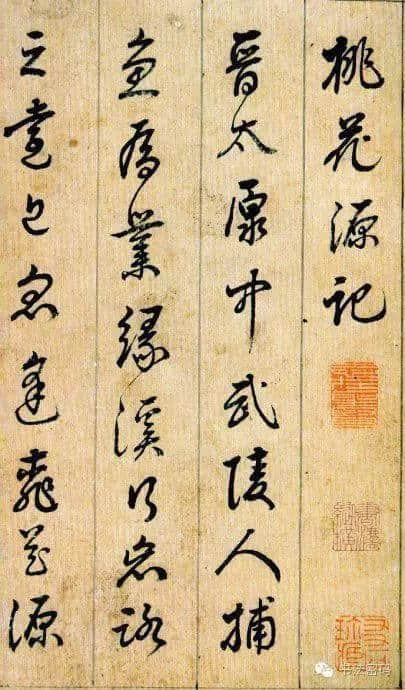 桃花源記
晉太原中武陵人捕
魚為業緣溪行忘路
之遠近忽逢桃花源
书法密码